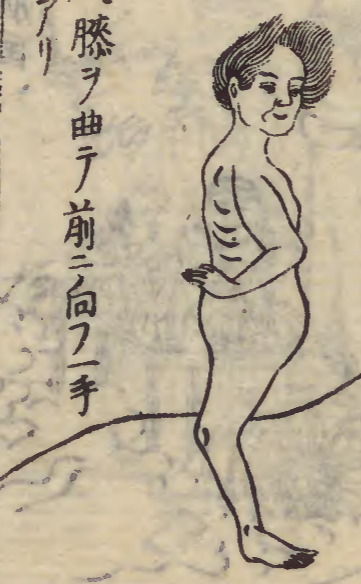 膝ヲ曲テ前ニ向フ一手
アリ